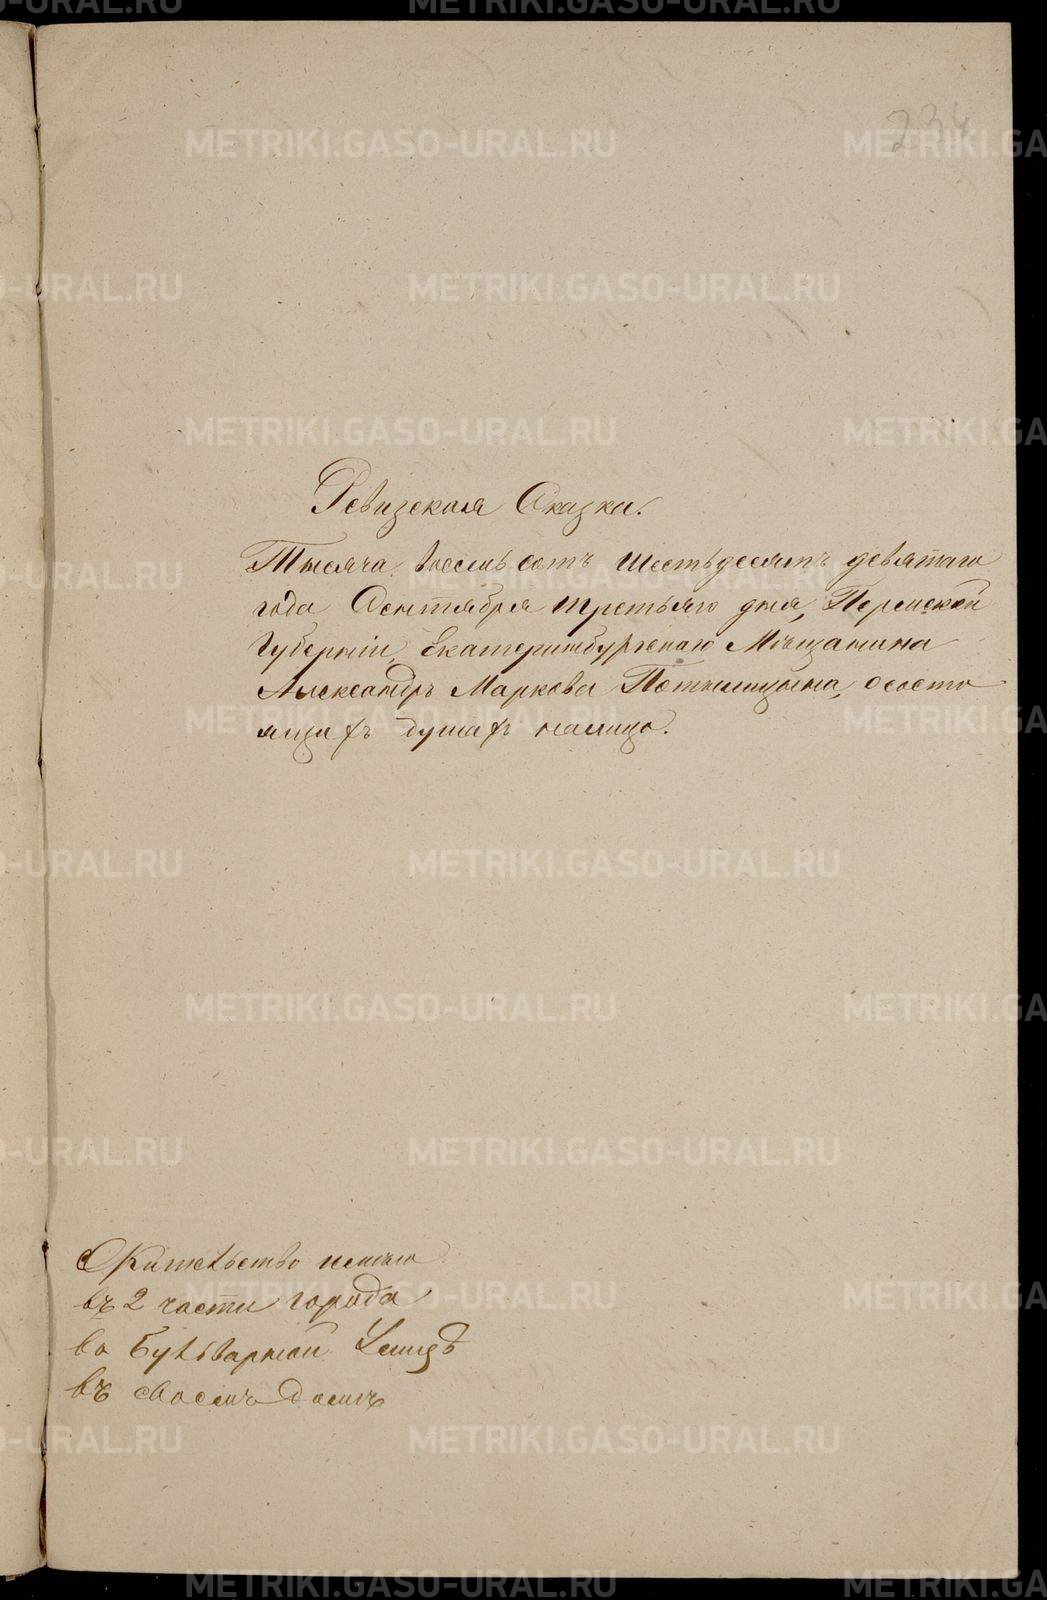 234
Ревизская Сказка.
Тысяча восемь сотъ шестьдесятъ девятаго
года Сентября третьяго дня, Пермской
Губерніи, Екатеринбургскаго Мѣщанина
Александръ Маркова Потылицына, о состо
ящихъ душахъ налицо.
Жительство имѣю
въ 2 части города
во Бульварной Улицѣ
въ своемъ домѣ
METRIKI.GASO-URAL.RU